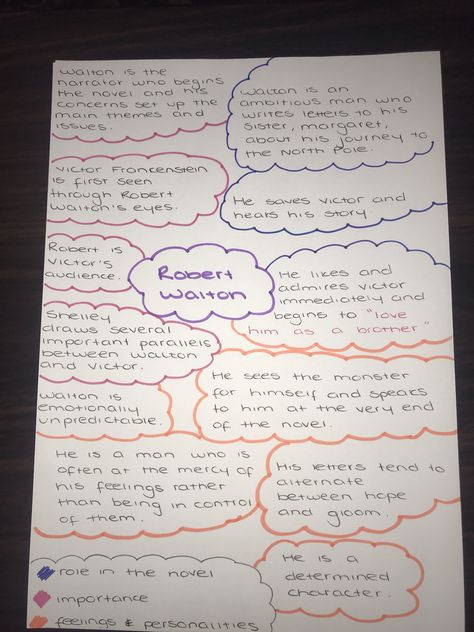 Walton is the
narrator who begins
the novel and his
concerns set up the
main themes and
issues.
Walton is an
ambitious man who
writes letters to his
sister, margaret,
about his journey to
the North Pole.
Victor Francenstein
is first seen
through Robert
Walton's eyes.
He saves victor and
hears his story.
Robert is
victor's
audience.
Robert
Walton
He likes and
admires victor
immediately and
begins to "love
him as a brother"
Shelley
draws several
important parallels
between walton
and victor.
He sees the monster
for himself and speaks
to him at the very end
of the novel.
Walton is
emotionally
unpredictable.
He is a man who is
often at the mercy of
his feelings rather
than being in control
of them.
His letters tend to
alternate
between hope
and gloom.
He is a
determined
character.
role in the novel
importance
feelings & personalities